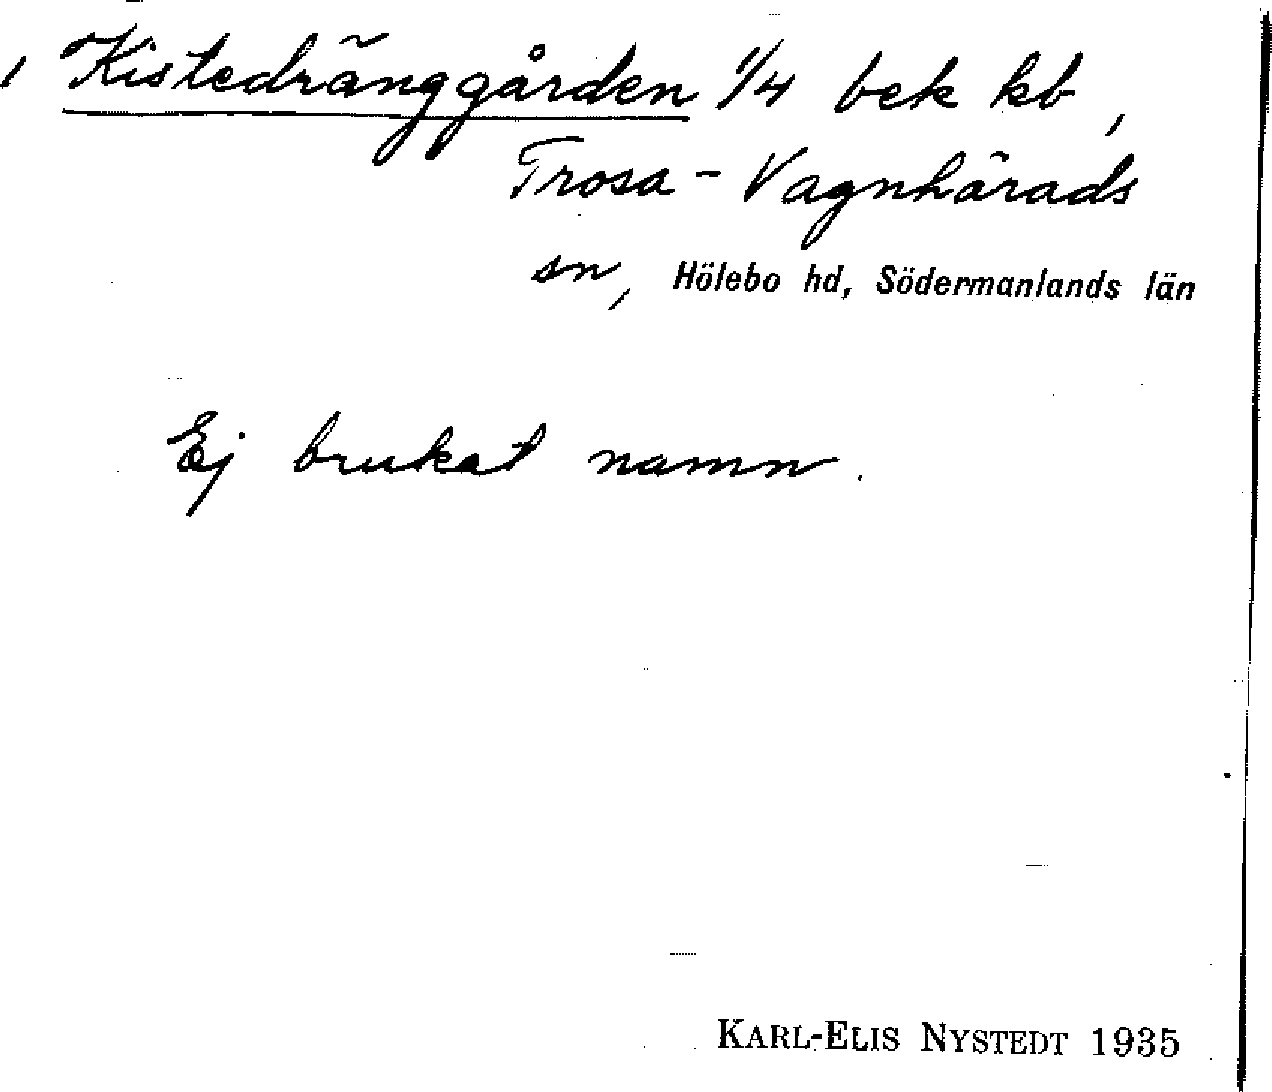 Kistedränggården 1/4 bek kb,
Trosa-Vagnhärads
sn, Hölebo hd, Södermanlands län
Ej brukat namn.
KARL-ELIS NYSTEDT 1935